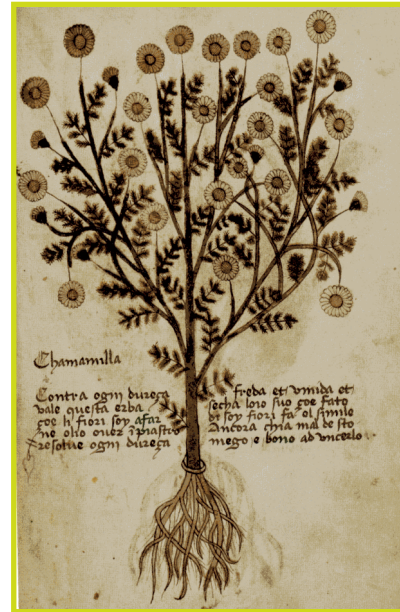 Chamamilla
Contra ogni dureça
vale questa erba
çoe li fiori soy afar
ne olio ouer ĩpiastro
resolue ogni dureça
freda et vmida et
secha loio suo çoe fato
di soy fiori fa el simile
Ancora chia mal de sto
mego e bono ad vncerlo